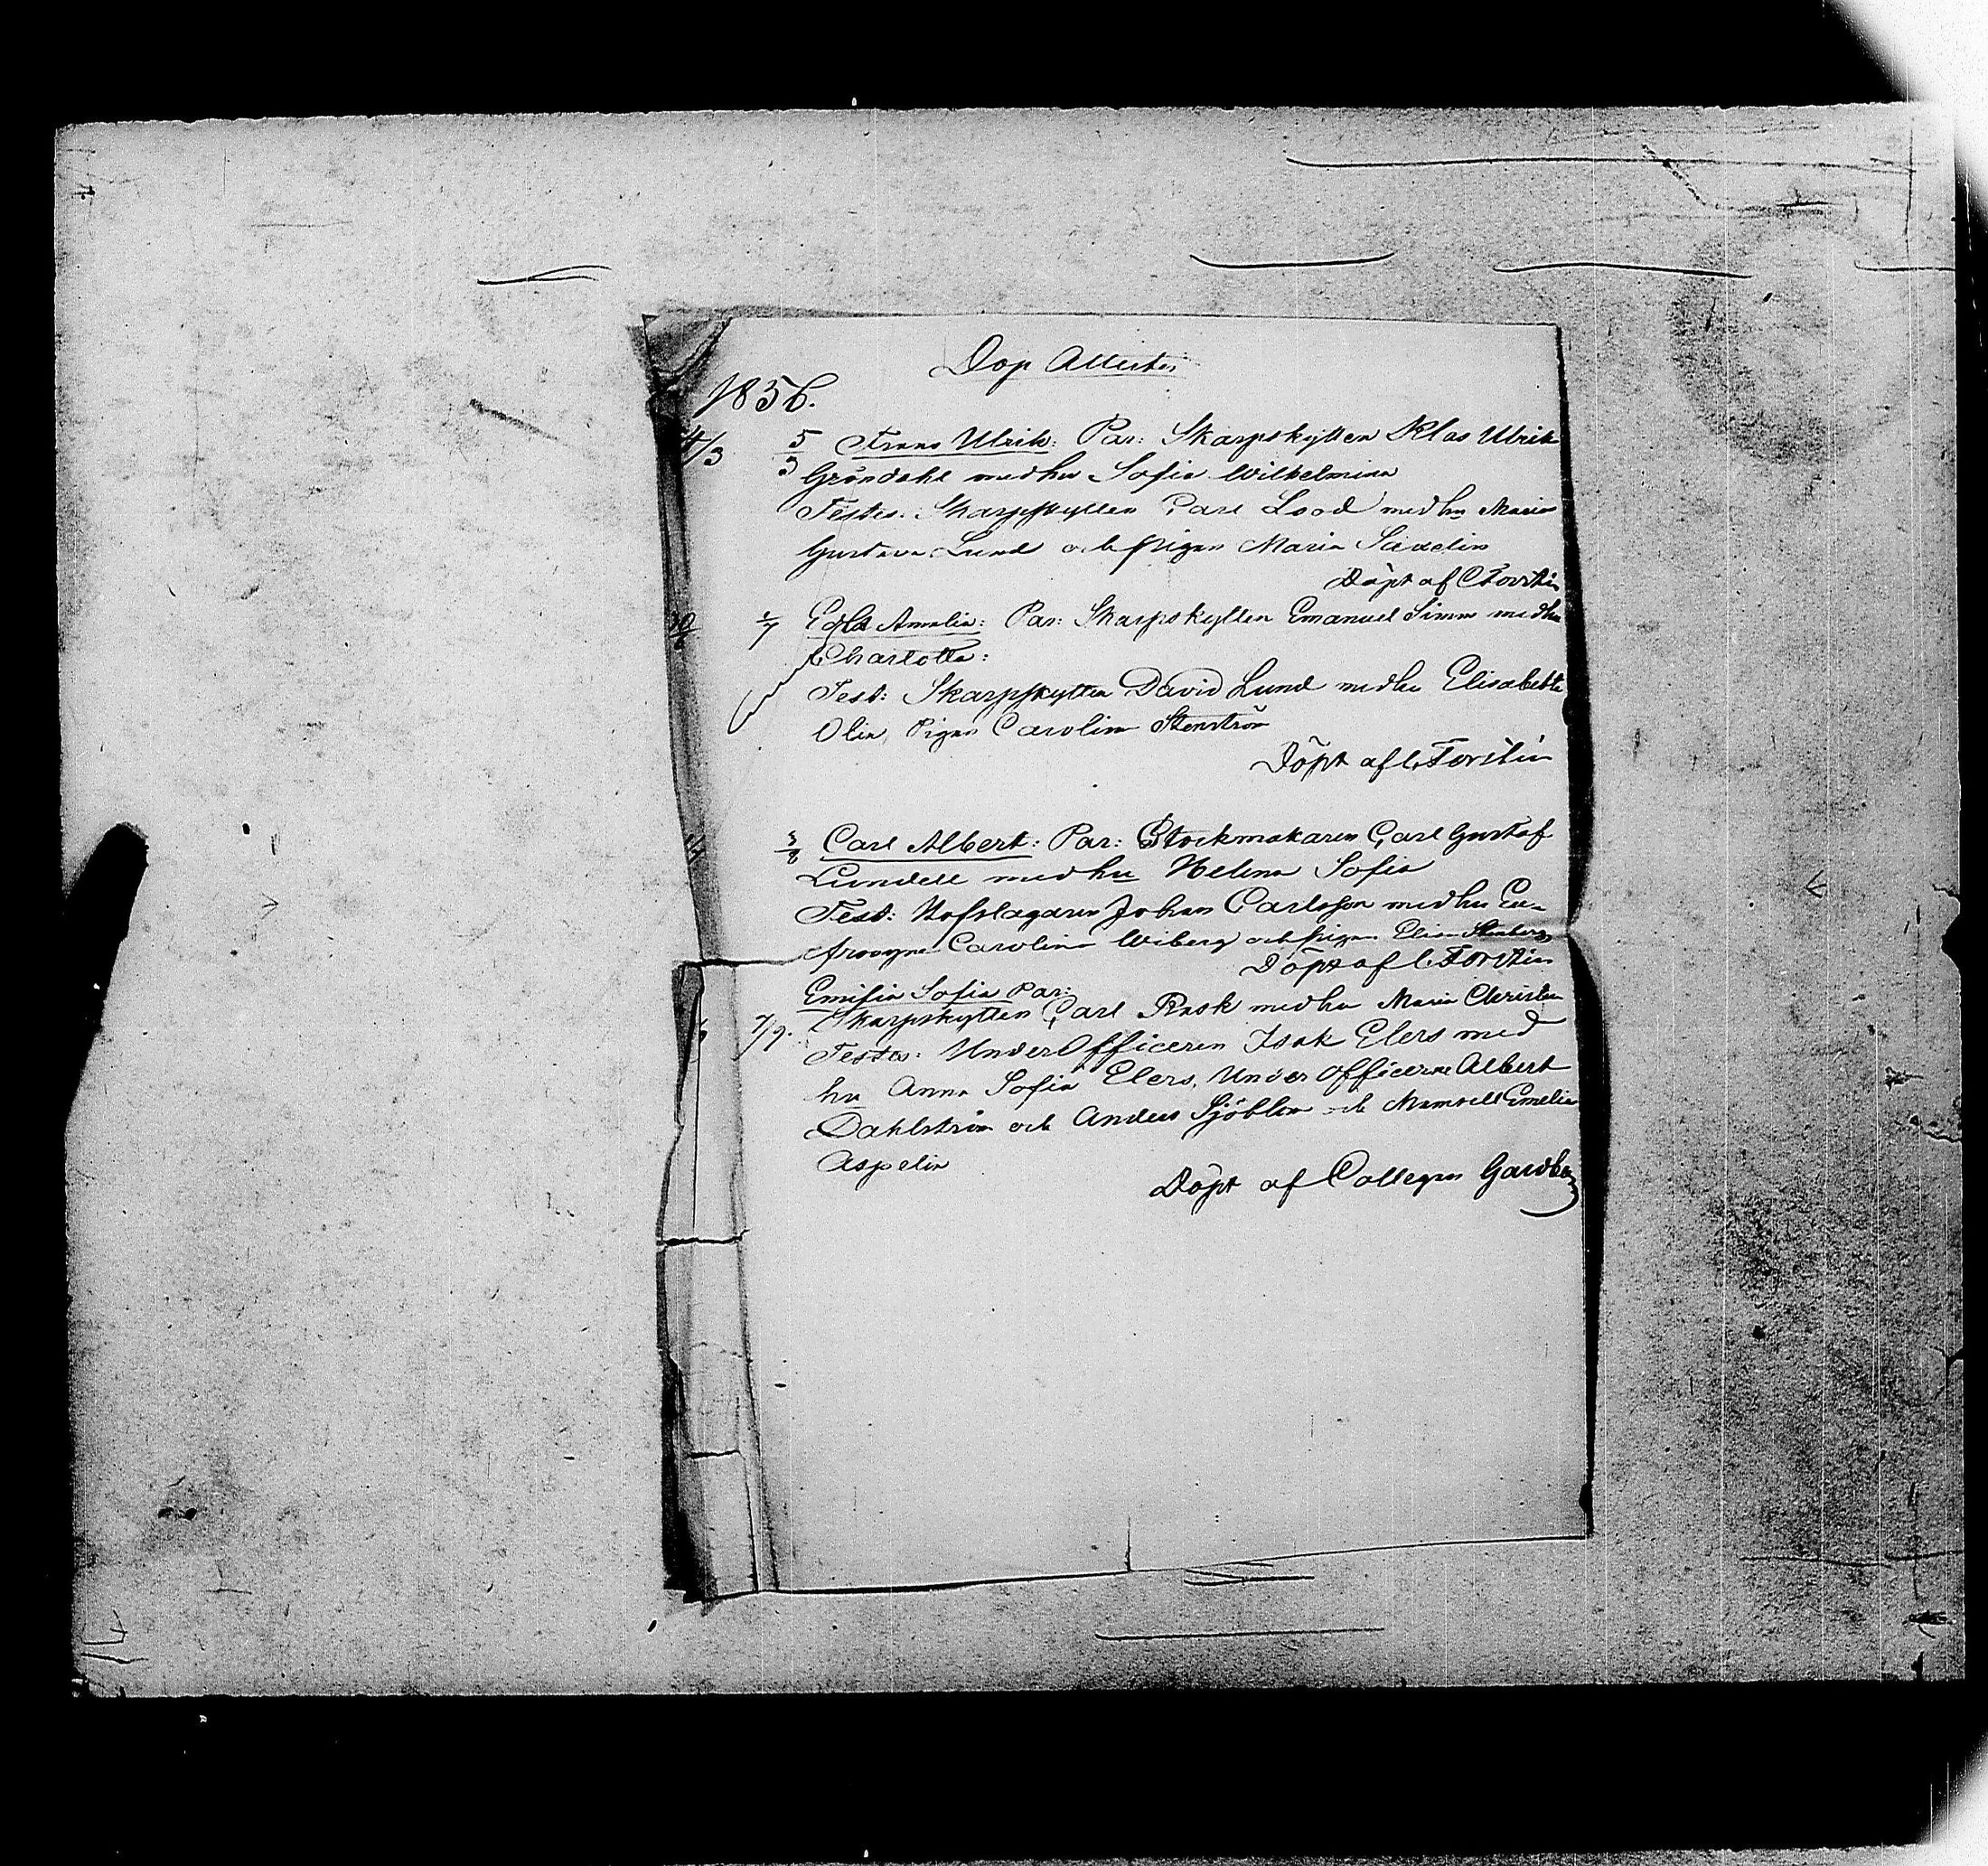 Dop Attester
1856.
4/3 5/3 Frans Ulrik: Par: Skarpskytten Klas Ulrik
Gröndahl med hu Sofia Wilhelmina
Testes. Skarpskytten Carl Lood med hu Maria
Gustava Lund och pigan Maria Savelin
Döpt af C Forstén
30/6 1/7 Edla Amalia: Par: Skarpskytten Emanuel Simm med hu
Charlotta:
Test: Skarpskytten David Lund med hu Elisabetha
Olin, Pigan Carolina Stenström
Döpt af C. Forstén
3/8 Carl Albert: Par: Stockmakaren Carl Gustaf
Lundell med hu Helena Sofia
Test: Hofslagaren Johan Carlsson med hu Eu-
frosyne Carolina Wiberg och pigan Elisa Stenberg
Döpt af C. Forstén
Emilia Sofia Par:
7/9. Skarpskytten Carl Rask med hu Maria Christina
Testes: UnderOfficeren Isak Elers med
hu Anna Sofia Elers, Under officerne Albert
Dahlström och Anders Sjöblom och Mamsell Emelie
Aspelin
Döpt af Collegan Gardberg